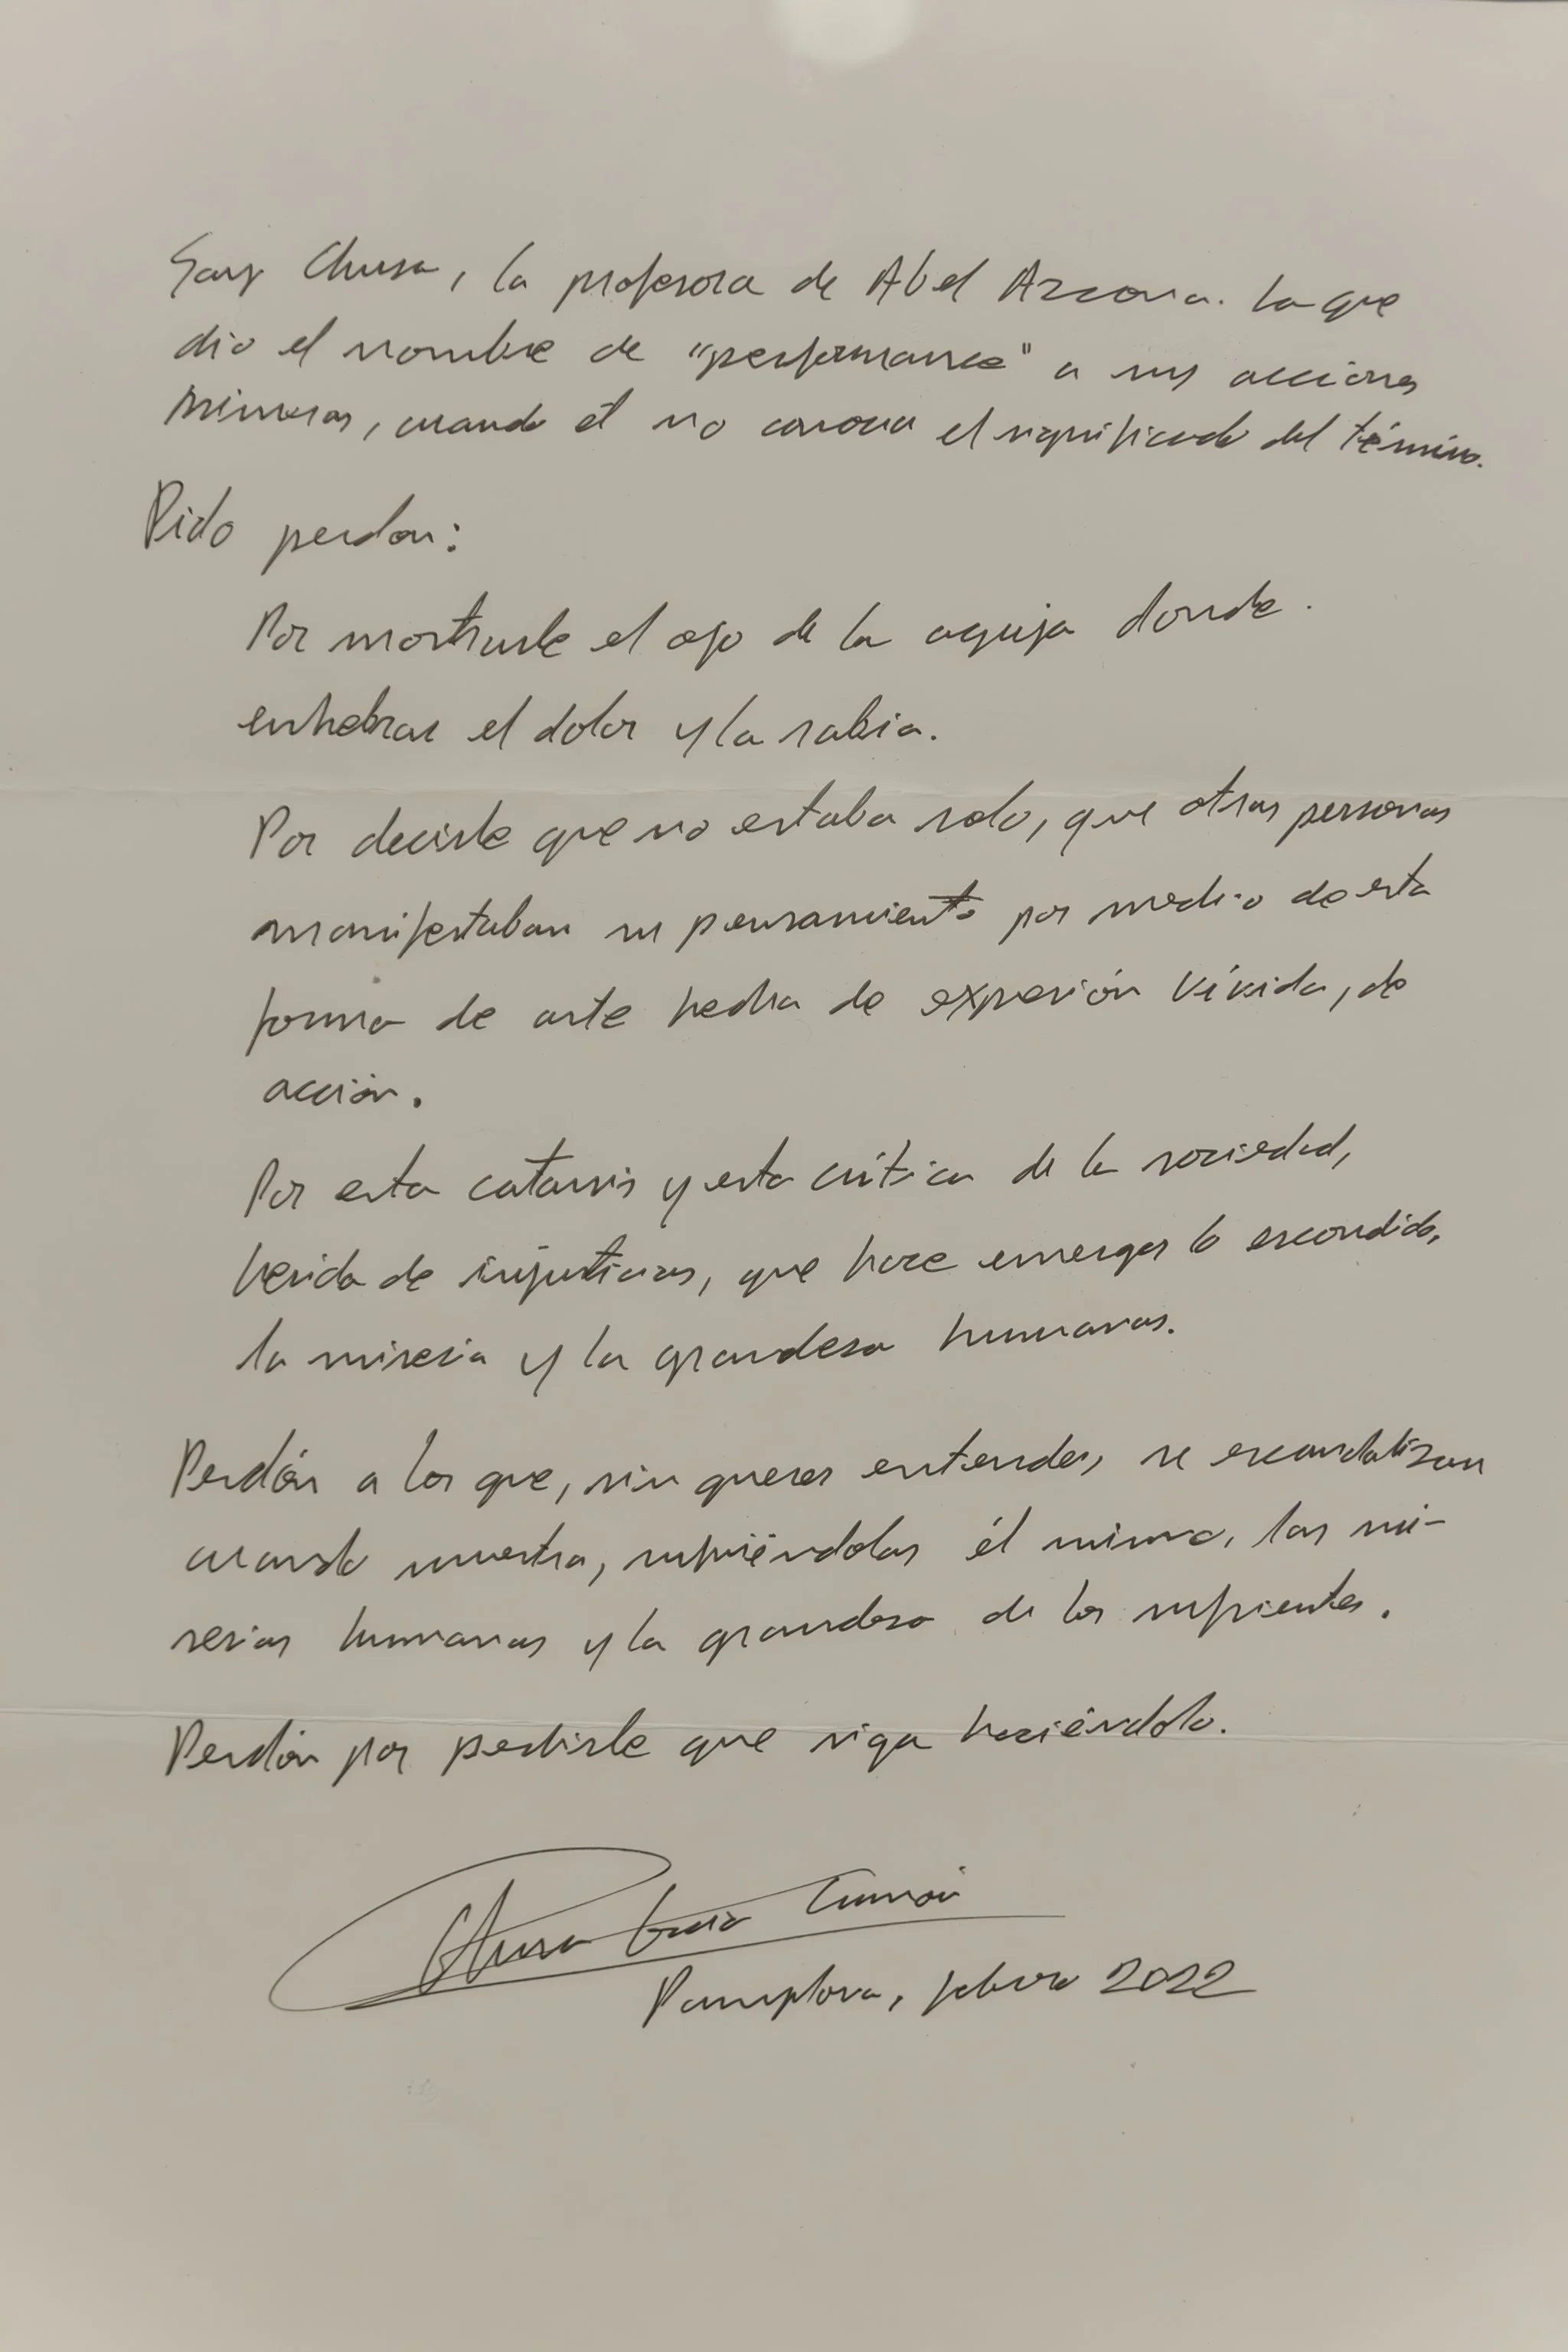 Soy Chusa, la profesora de Abel Azcona. La que
dio el nombre de "performance" a sus acciones
primeras, cuando él no conocía el significado del término.
Pido perdón:
Por mostrarle el ojo de la aguja donde
enhebrar el dolor y la rabia.
Por decirle que no estaba solo, que otras personas
manifestaban su pensamiento por medio de esta
forma de arte hecha de expresión vívida, de
acción.
Por esta catarsis y esta crítica de la sociedad,
herida de injusticias, que hace emerger lo escondido,
la miseria y la grandeza humanas.
Perdón a los que, sin querer entender, se escandalizan
cuando muestra, sufriéndolas él mismo, las mi-
serias humanas y la grandeza de los sufrientes.
Perdón por pedirle que siga haciéndolo.
Chusa
Pamplona, febrero 2022